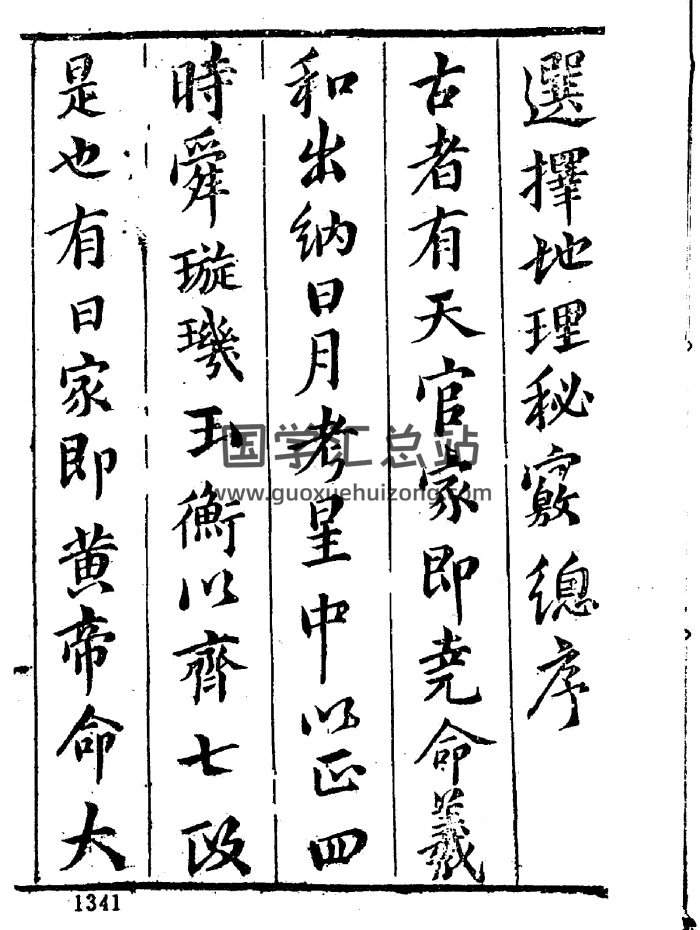 選擇地理秘竅總序
古者有天官家即堯命羲
和出納日月考星中以正四
時舜璇璣玉衡以齊七政
是也有日家即黄帝命大
国学汇总站
www.guoxuehuizong.com
1341